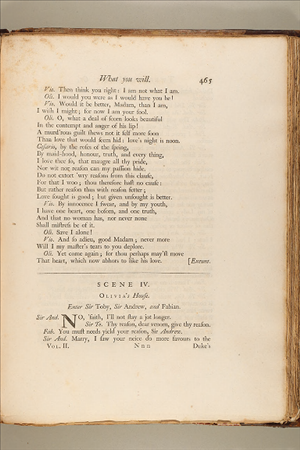 What you will. 465
Vio. Then think you right: I am not what I am.
Oli. I would you were as I would have you be!
Vio. Would it be better, Madam, than I am,
I wish it might; for now I am your fool.
Oli. O, what a deal of scorn looks beautiful
In the contempt and anger of his lip!
A murd'rous guilt shews not it self more soon
Than love that would seem hid: love's night is noon.
Cesario, by the roses of the spring,
By maid-hood, honour, truth, and every thing,
I love thee so, that maugre all thy pride,
Nor wit nor reason can my passion hide.
Do not extort thy reasons from this clause,
For that I woo; thou therefore hast no cause:
But rather reason thus with reason fetter;
Love sought is good; but given unsought is better.
Vio. By innocence I swear, and by my youth,
I have one heart, one bosom, and one truth,
And that no woman has, nor never none
Shall mistress be of it.
Oli. Save I alone!
Vio. And so adieu, good Madam; never more
Will I my master's tears to you deplore.
Oli. Yet come again; for thou perhaps may'st move
That heart, which now abhors to like his love. [Exeunt.
SCENE IV.
OLIVIA's House.
Enter Sir Toby, Sir Andrew, and Fabian.
Sir And. NO, 'faith, I'll not stay a jot longer.
Sir To. Thy reason, dear venom, give thy reason.
Fab. You must needs yield your reason, Sir Andrew.
Sir And. Marry, I saw your neice do more favours to the
VOL. II. N n n Duke's